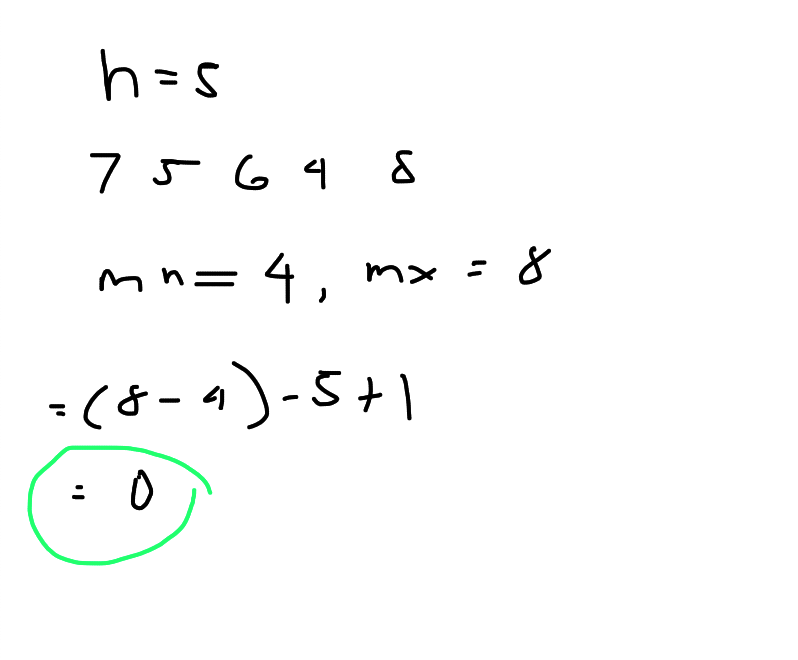 n = 5
7 5 6 4 8
mn = 4, mx = 8
= (8 - 4) - 5 + 1
= 0